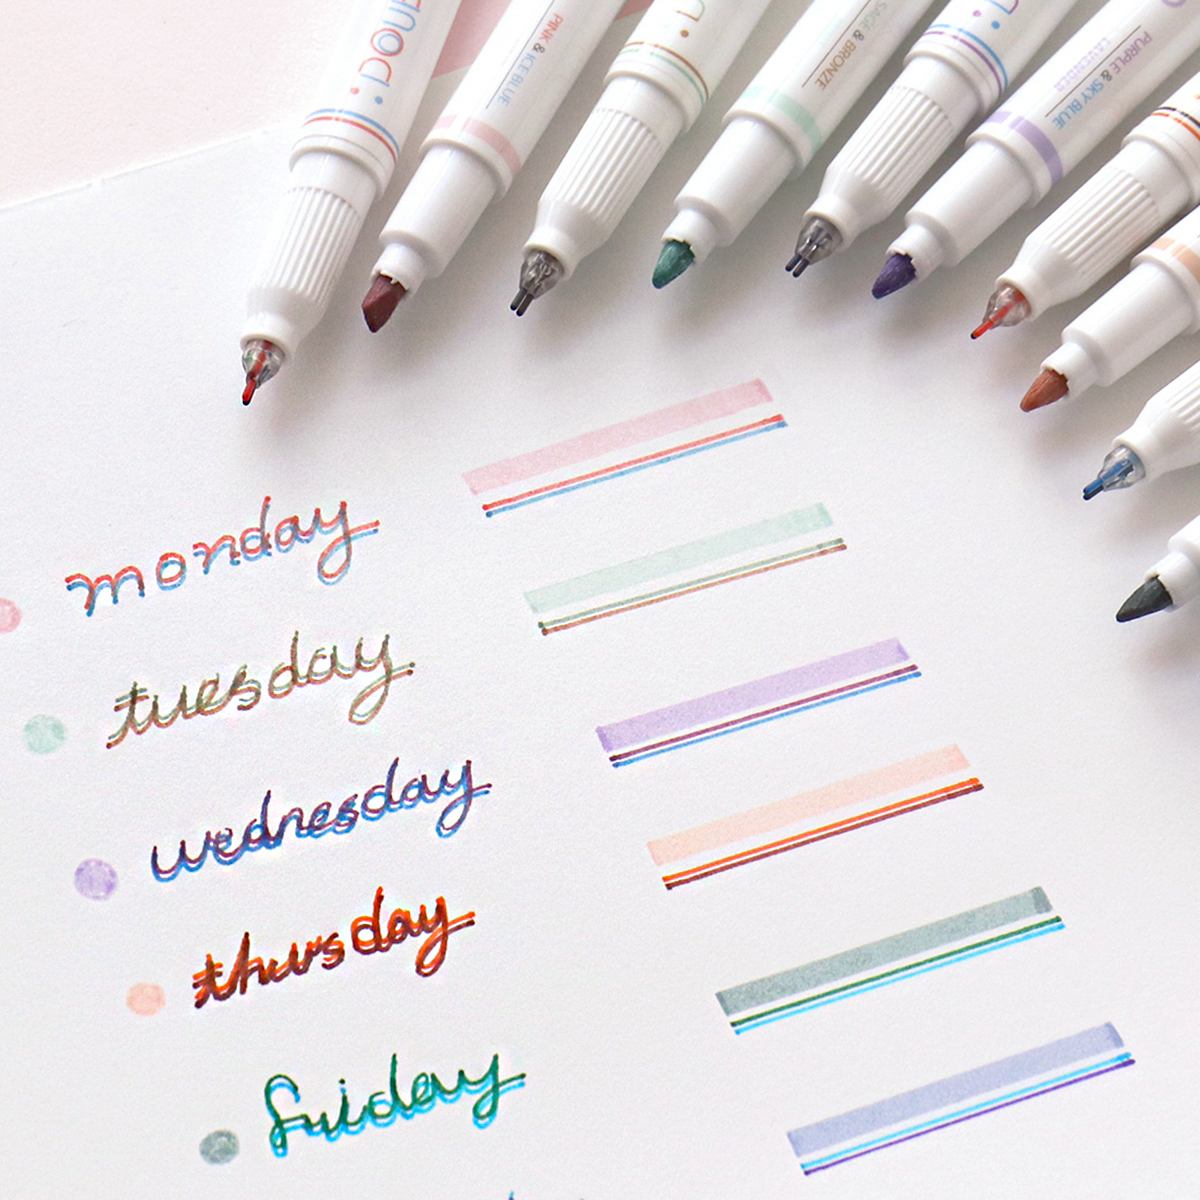 PINK & ICE BLUE
SAGE & BRONZE
PURPLE & SKY BLUE
LAVENDER
monday
tuesday
wednesday
thursday
friday